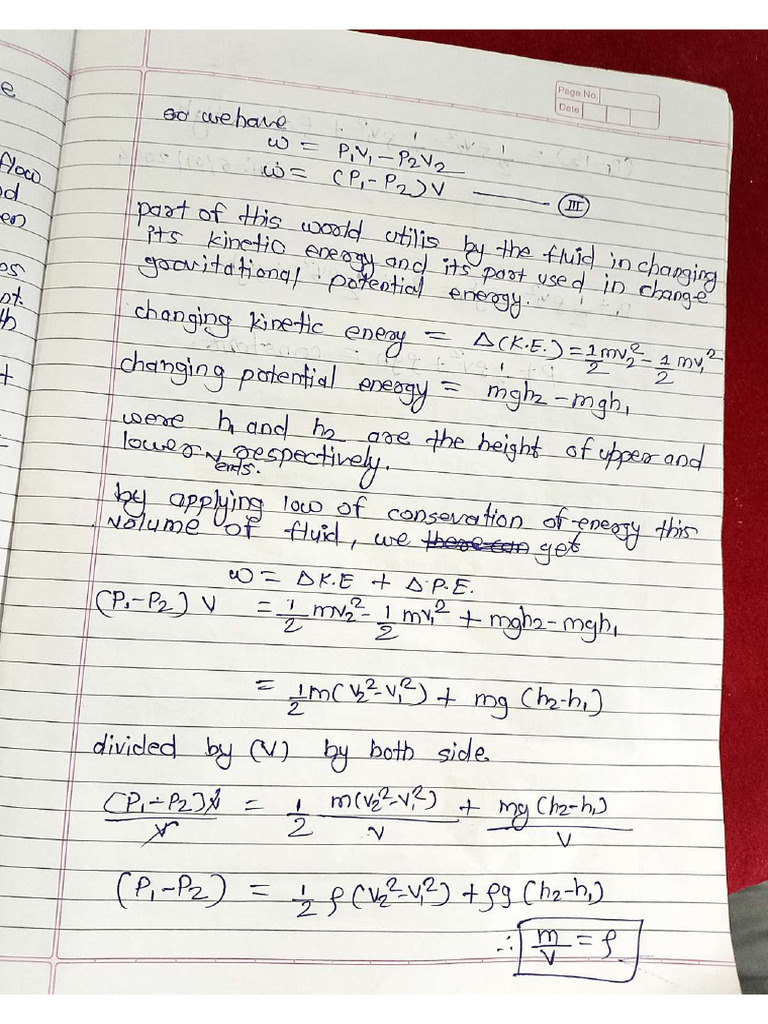 e
flow
nd
en
os
nt.
th
t
Page No.
Date
so we have
w = P₁V₁ - P₂V₂
w = (P₁ - P₂)V ——— (III)
part of this world utilis by the fluid in changing
its kinetic energy and its part used in change
gravitational potential energy.
changing kinetic enery = Δ(K.E.) = 1/2 mv₂² - 1/2 mv₁²
changing potential energy = mgh₂ - mgh₁
were h₁ and h₂ are the height of upper and
lower ends. respectively.
by applying low of consevation of energy this
volume of fluid, we get
w = ΔK.E + Δ.P.E.
(P₁-P₂) V = 1/2 mv₂² - 1/2 mv₁² + mgh₂ - mgh₁
= 1/2 m(v₂² - v₁²) + mg (h₂-h₁)
divided by (V) by both side
(P₁-P₂)V/V = 1/2 m(v₂²-v₁²)/V + mg(h₂-h₁)/V
(P₁-P₂) = 1/2 ρ(v₂²-v₁²) + ρg (h₂-h₁)
∴ m/V = ρ